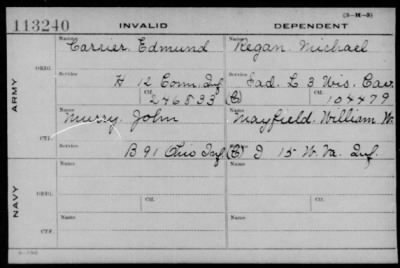 (3—M—3)
113240 INVALID DEPENDENT
Name Name
Carrier, Edmund Regan, Michael
ARMY
ORIG.
Service Service
H 12 Conn. Inf. Sad. L 3 Wis. Cav.
Ctf. Ctf.
246533 (C) 104479
Name Name
Murry, John Mayfield, William W.
CTF.
Service Service
B 91 Ohio Inf. (C) I 15 W. Va. Inf.
NAVY
Name Name
ORIG.
Ctf. Ctf.
Name Name
CTF.